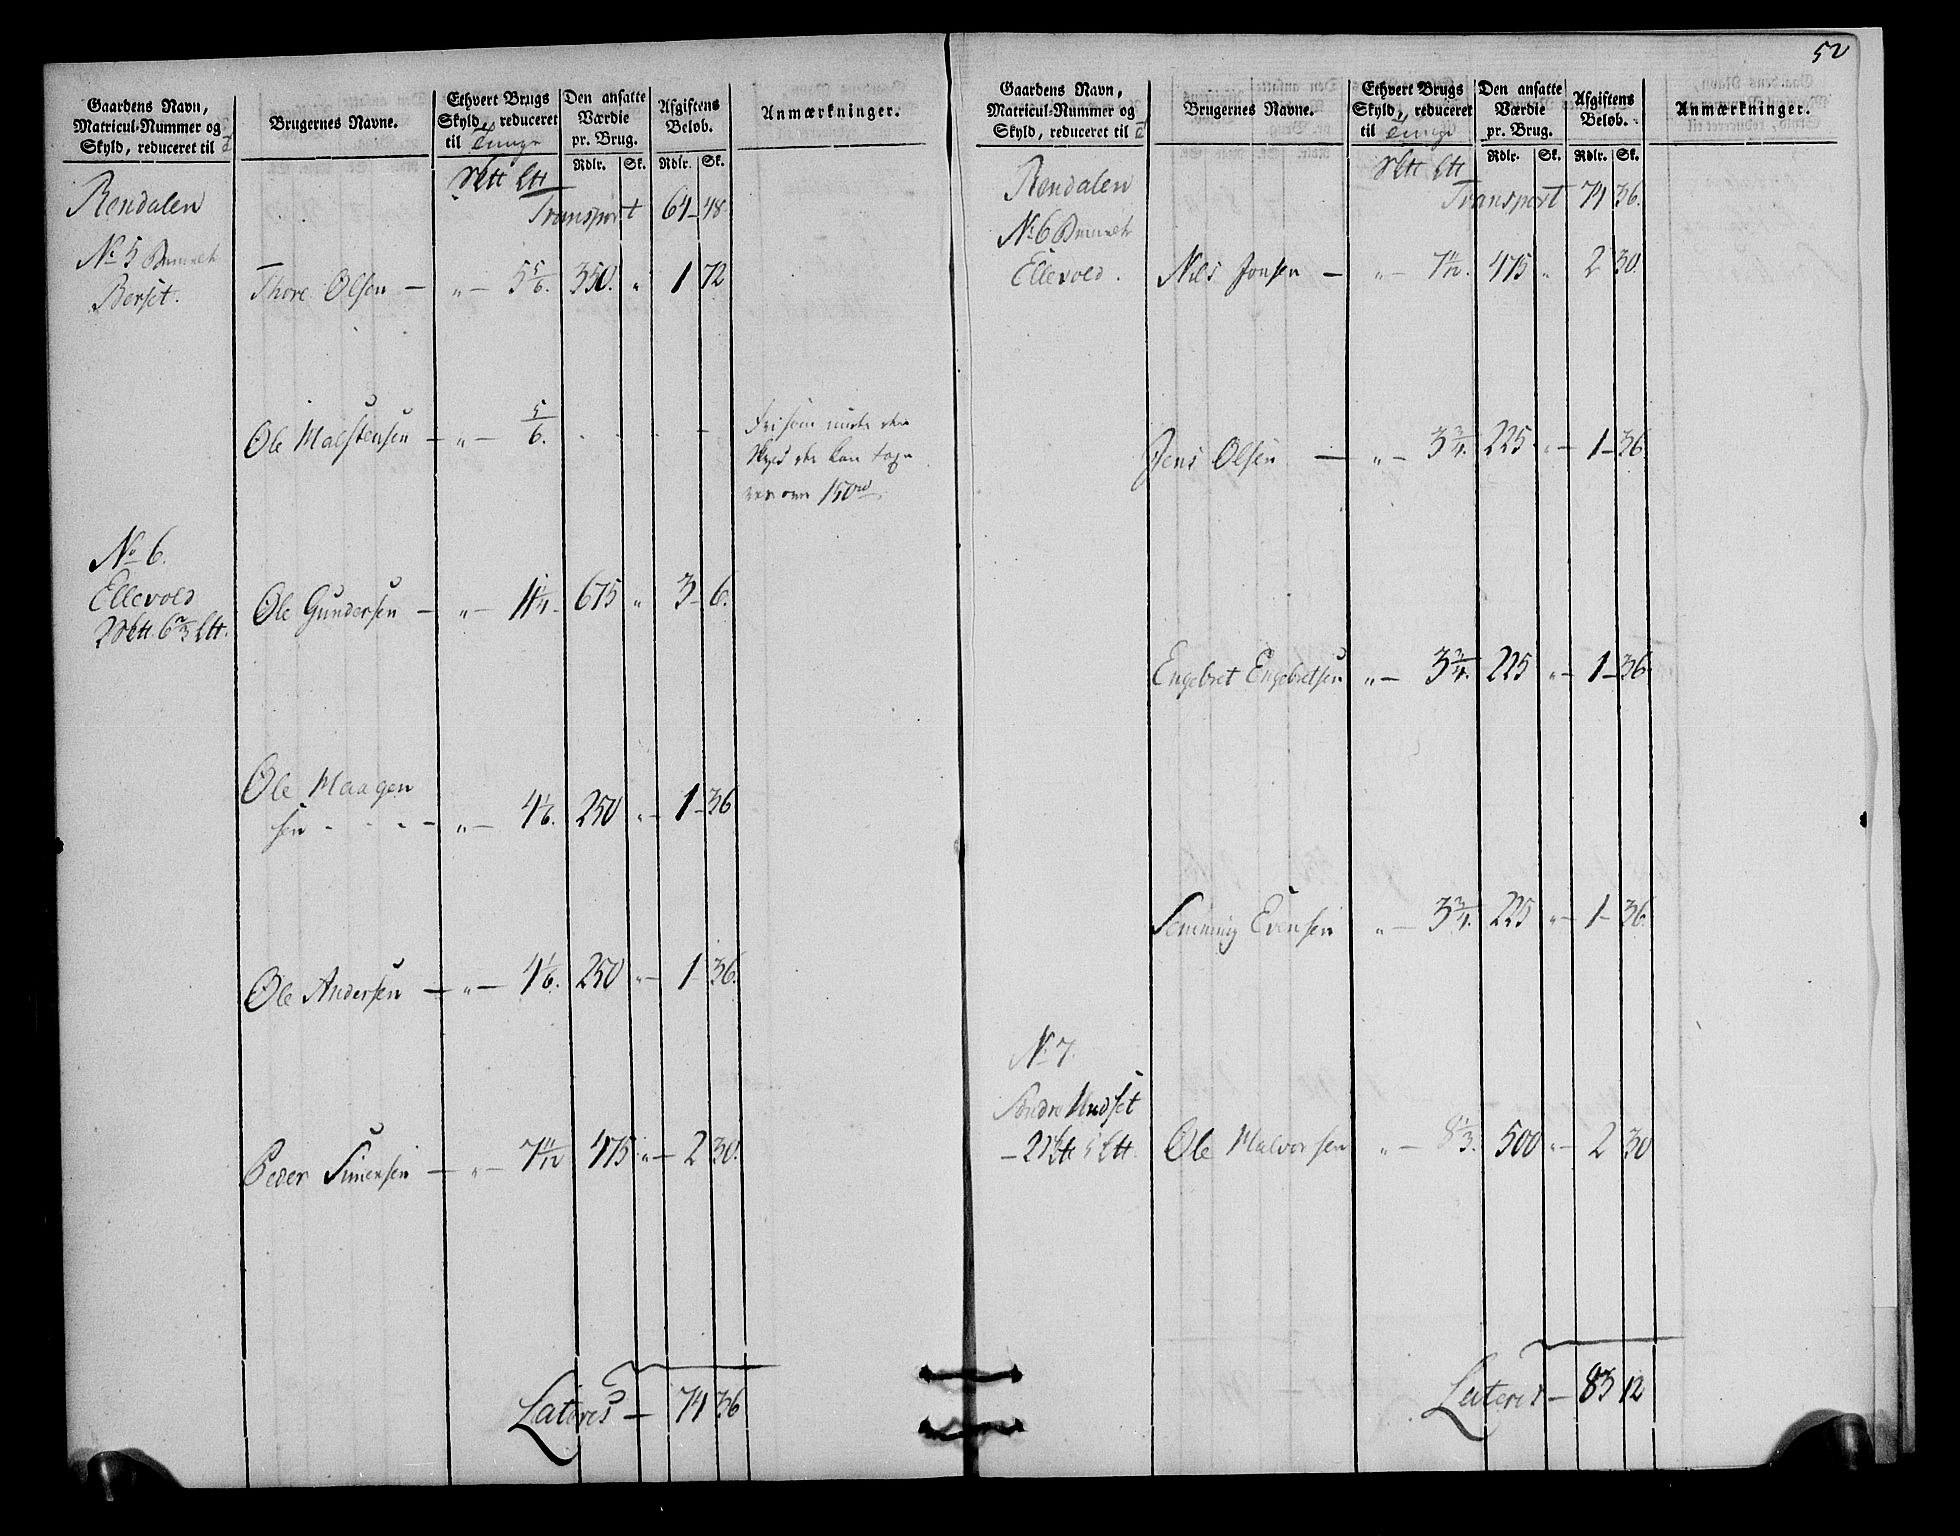 52
Gaardens Navn, Matricul-Nummer og Skyld, reduceret til
Brugernes Navne.
Ethvert Brugs Skyld, reduceret til Tunge
Den ansatte Værdie pr. Brug.
Afgiftens Beløb.
Anmærkninger.
Rdlr. Sk. Rdlr. Sk.
Rendalen
Transport 64 48
No 5
Berset. Thore Olsen — „ — 5 5/6. 350. „ 1 72
Ole Malstensen — „ — 5/6.
150 rd
No 6.
Ellevold
Ole Gundersen — „ — 11 1/4 675 „ 3 6.
Ole Maagen
sen - - - „ — 4 1/6. 250 „ 1 36
Ole Andersen — „ — 4 1/6. 250 „ 1 36.
Peder Simensen — „ — 7 11/12 475 „ 2 30.
Lateris — 74 36
Gaardens Navn, Matricul-Nummer og Skyld, reduceret til
Brugernes Navne.
Ethvert Brugs Skyld, reduceret til Tunge
Den ansatte Værdie pr. Brug.
Afgiftens Beløb.
Anmærkninger.
Rdlr. Sk. Rdlr. Sk.
Rendalen
Transport 74 36.
No 6
Ellevold. Nils Jonsen — „ — 7 11/12. 475 „ 2 30.
Jens Olsen — „ — 3 3/4. 225 „ 1 36
Engebret Engebretsen „ — 3 3/4. 225 „ 1 36
Semming Evensen „ — 3 3/4. 225 „ 1 36.
No 7.
Søndre Undset
Ole Halvorsen „ — 8 1/3. 500 „ 2 30
Lateris — 83 12